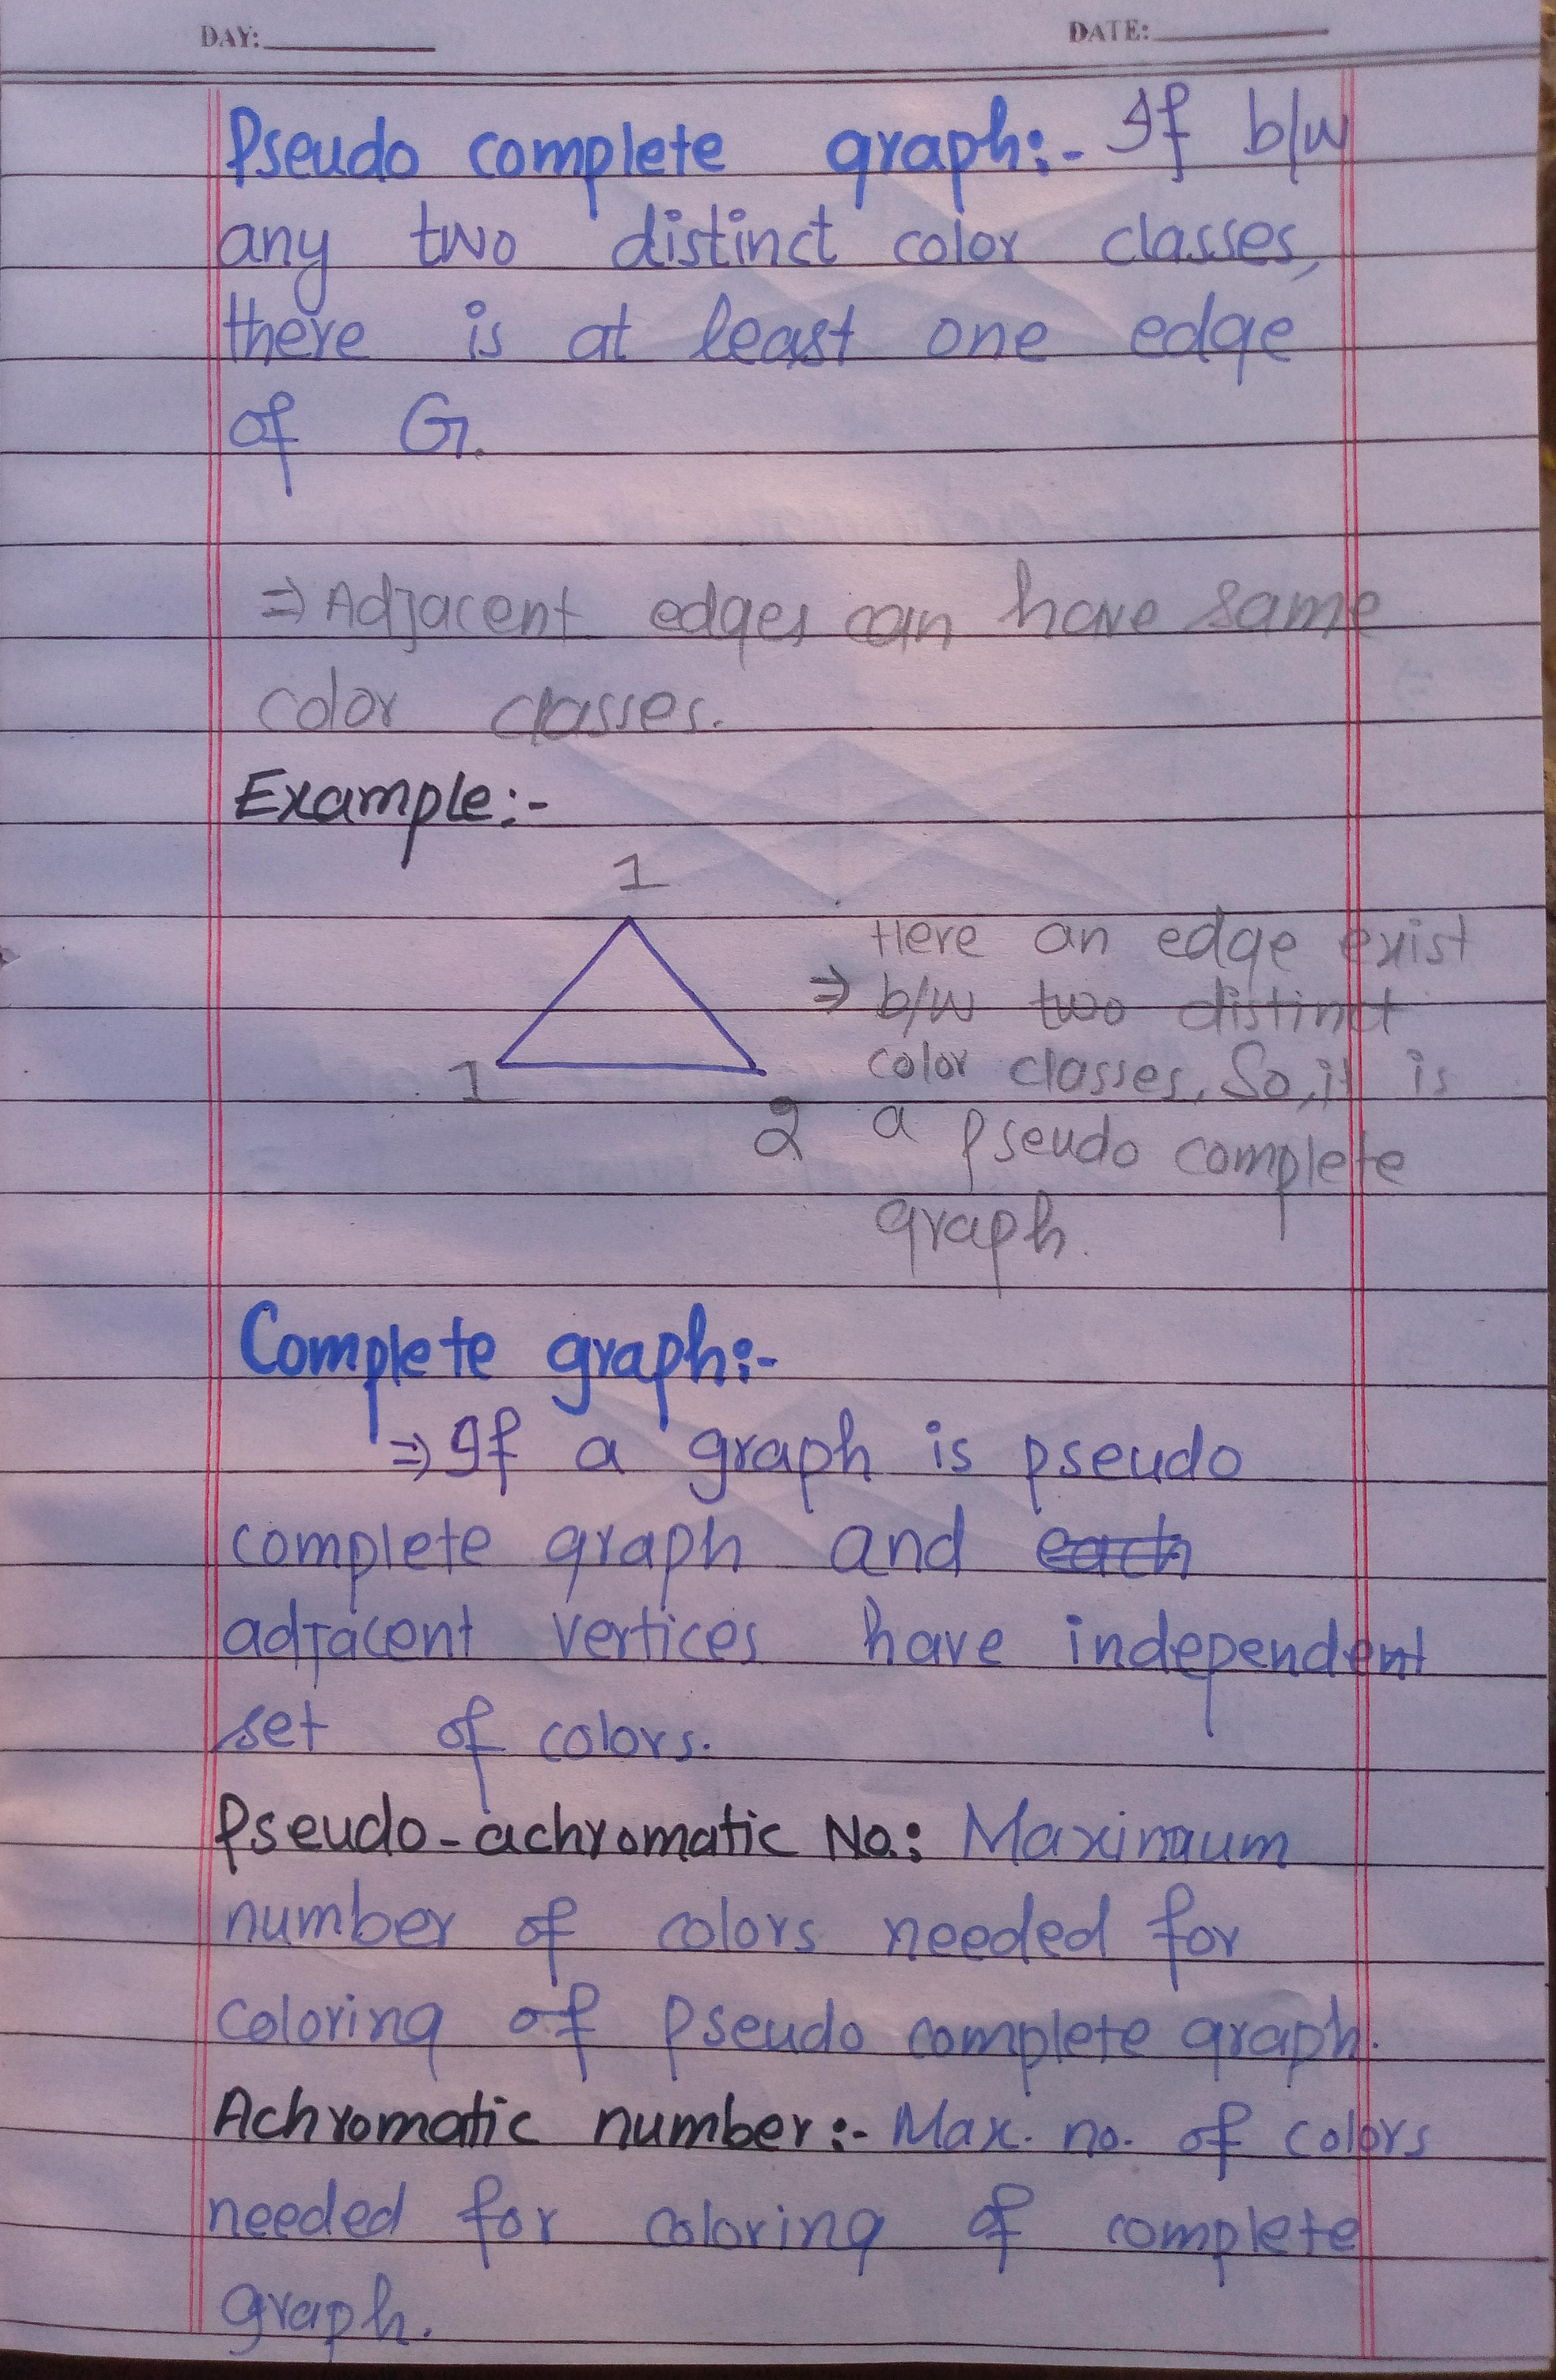 DAY: DATE:
Pseudo complete graph:- If b/w
any two distinct color classes,
there is at least one edge
of G.
⇒ Adjacent edges can have same
color classes.
Example:-
1
1
2
Here an edge exist
⇒ b/w two distinct
color classes, So, it is
a pseudo complete
graph.
Complete graph:-
⇒ If a graph is pseudo
complete graph and each
adjacent vertices have independent
set of colors.
Pseudo-achromatic No.: Maximaum
number of colors needed for
coloring of pseudo complete graph.
Achromatic number:- Max. no. of colors
needed for coloring of complete
graph.